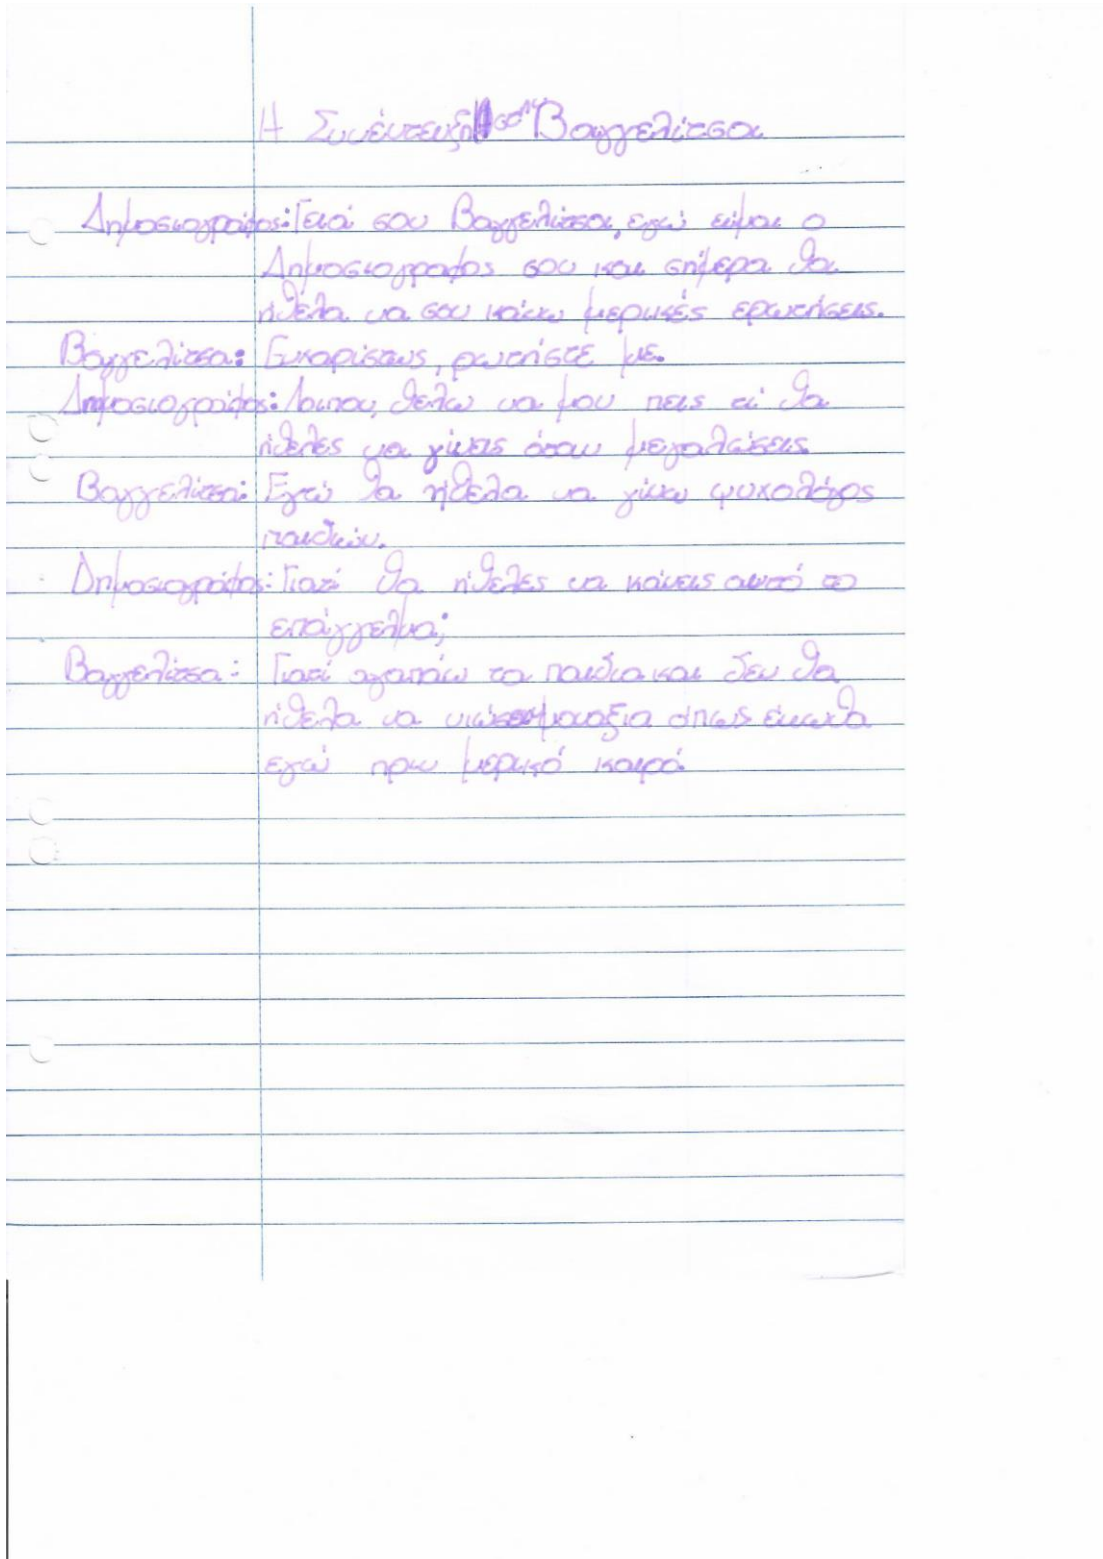 Η Συνέντευξη στην Βαγγελίτσα
Δημοσιογράφος: Γειά σου Βαγγελίτσα, εγώ είμαι ο
Δημοσιογράφος σου και σήμερα θα
ήθελα να σου κάνω μερικές ερωτήσεις.
Βαγγελίτσα: Ευχαρίστως, ρωτήστε με.
Δημοσιογράφος: Λοιπον, θέλω να μου πεις τί θα
ήθελες να γίνεις όταν μεγαλώσεις.
Βαγγελίτσα: Εγώ θα ήθελα να γίνω ψυχολόγος
παιδιών.
Δημοσιογράφος: Γιατί θα ήθελες να κάνεις αυτό το
επάγγελμα;
Βαγγελίτσα: Γιατί αγαπάω τα παιδια και δεν θα
ήθελα να μοναξια όπως ένιωθα
εγώ πριν μερικό καιρό.